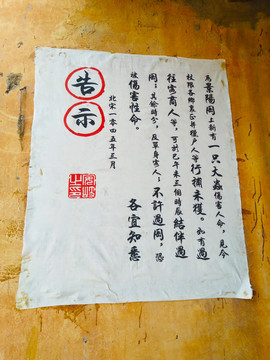 為景陽岡上新有一只大蟲傷害人命,見今
杖限各鄉里正并獵戶人等行捕未獲。如有過
往客商人等,可於巳午未三個時辰結伴過
岡;其餘時分,及單身客人;不許過岡,恐
被傷害性命。 各宜知悉
北宋一零四五年三月
告示